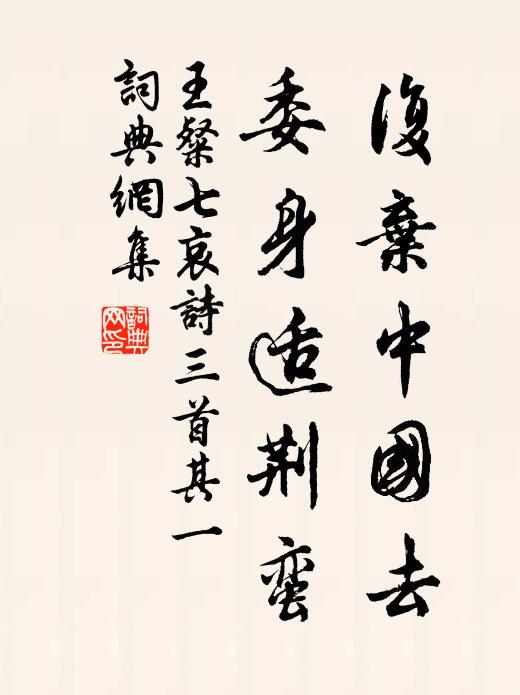 復棄中國去
委身适荆蛮
王粲七哀詩三首其一
詞典網集
詞典网印